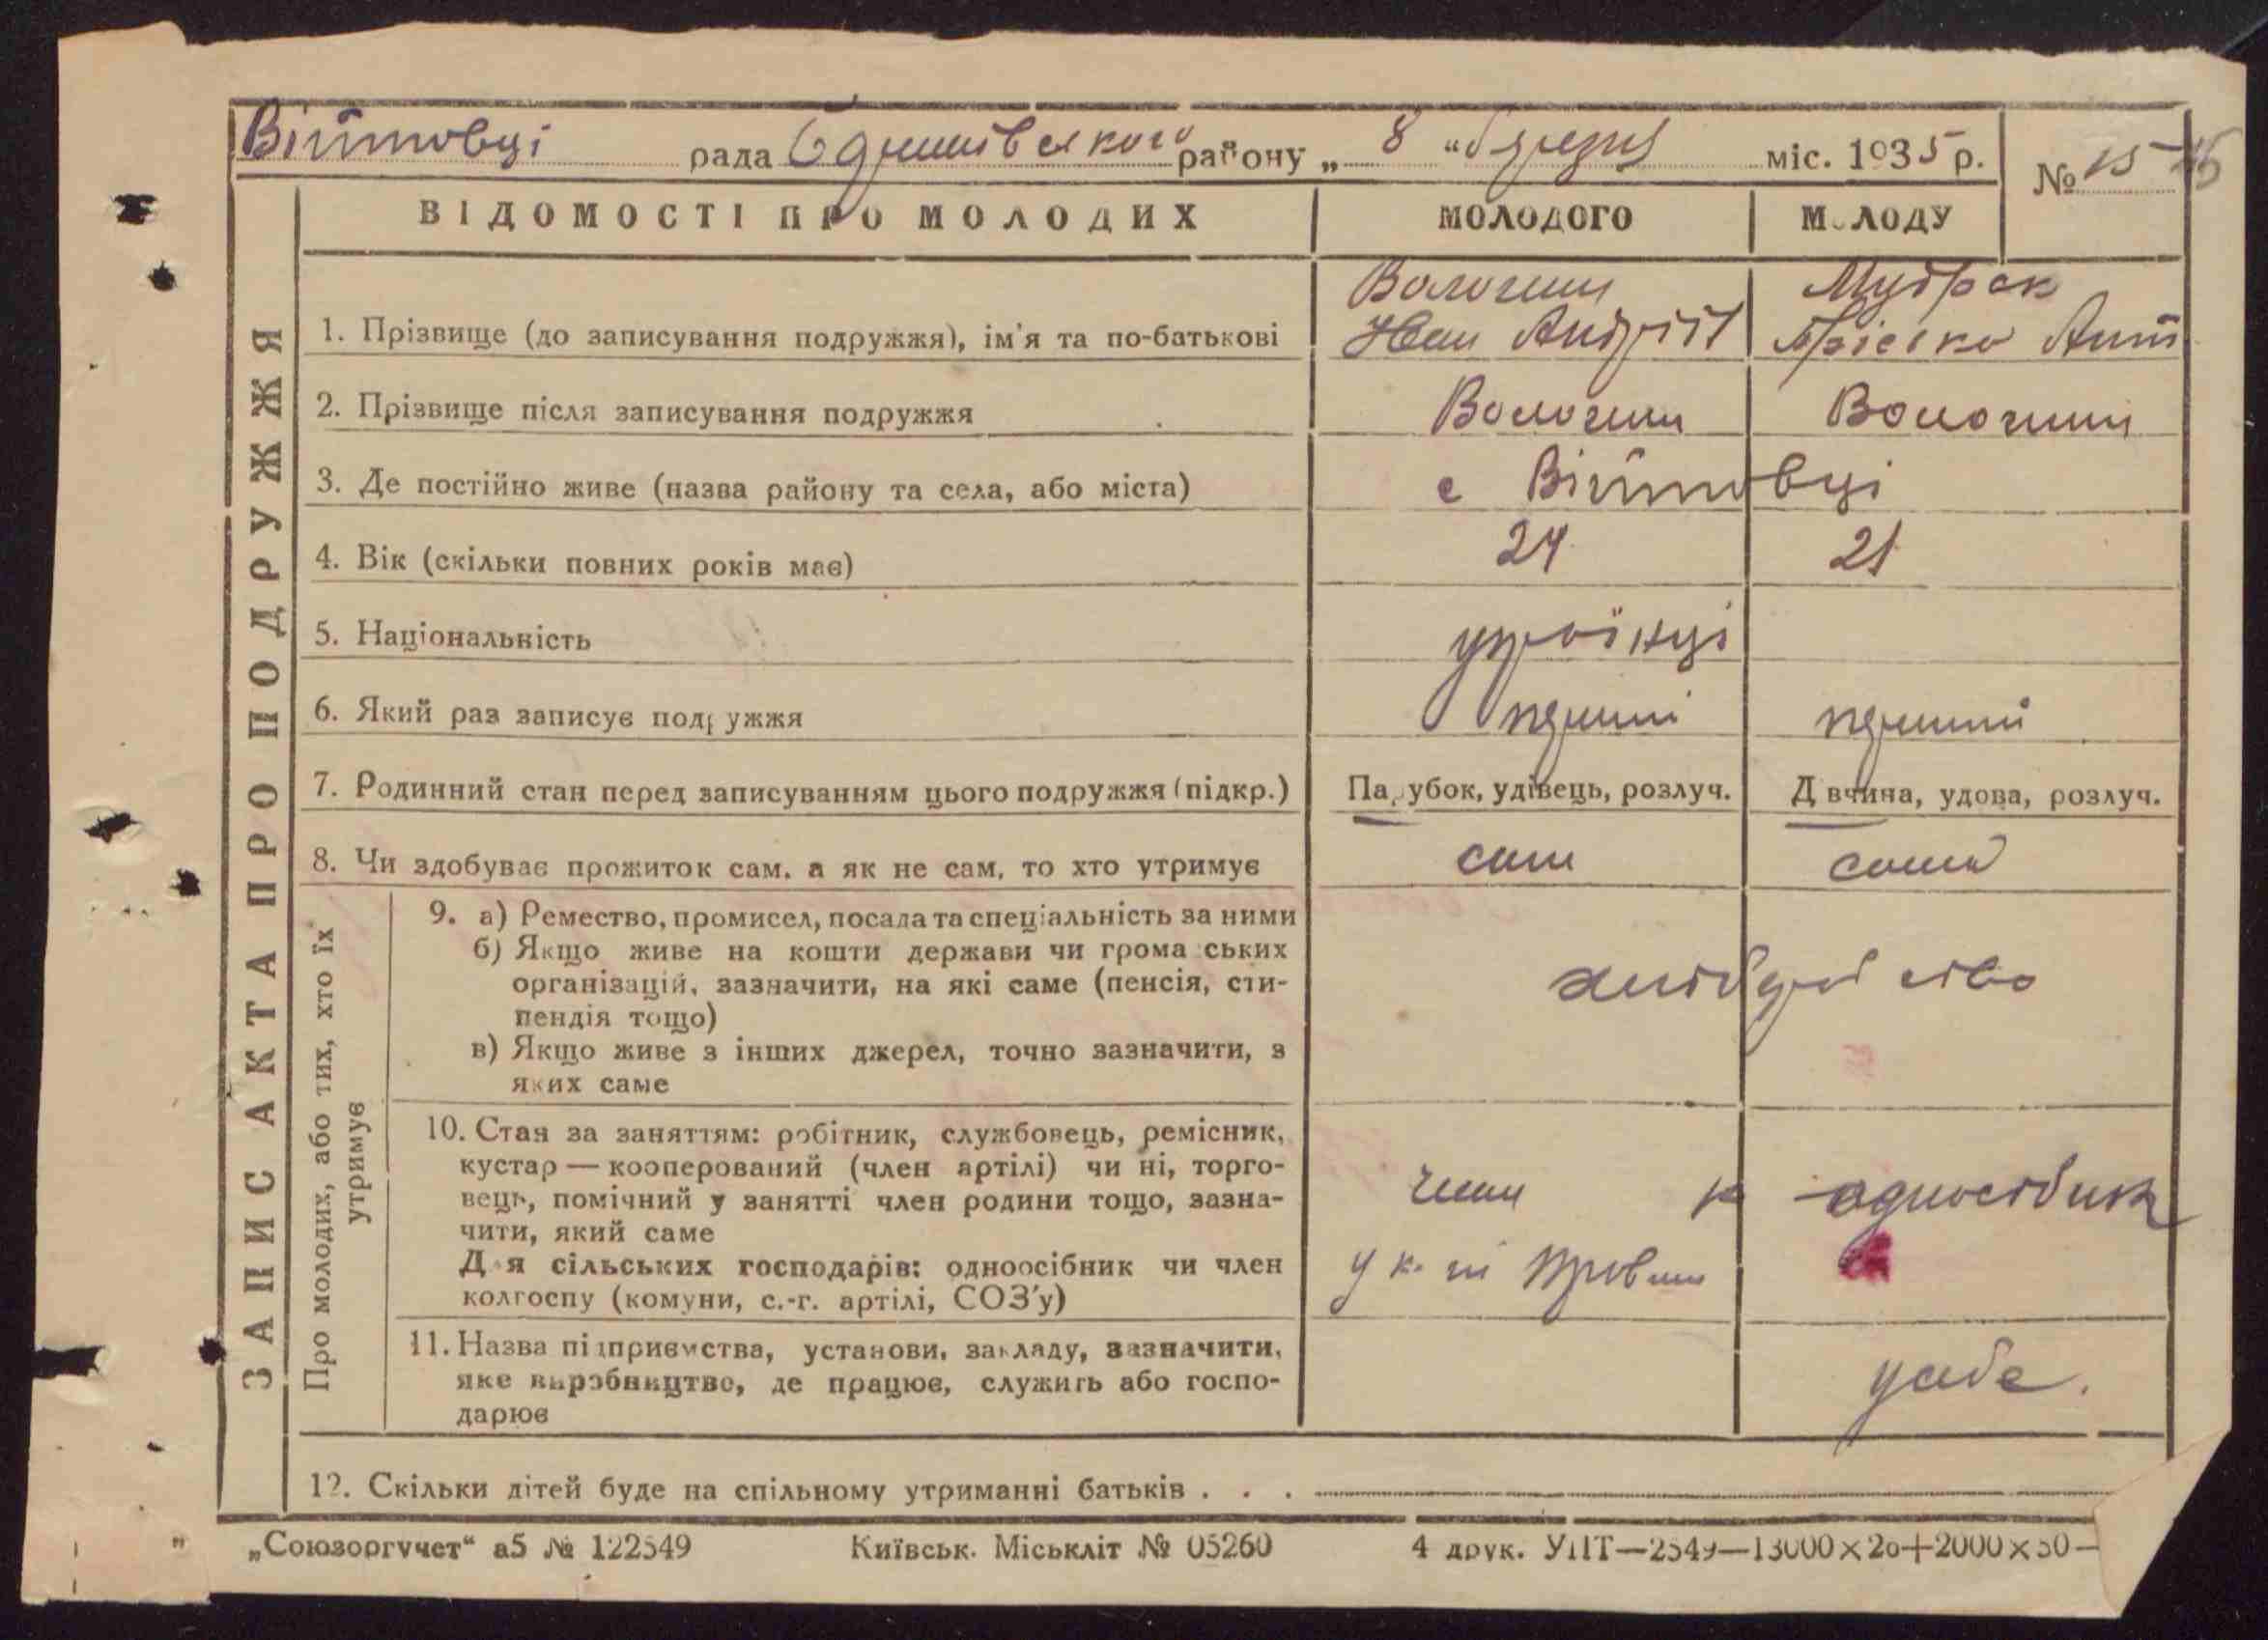 Війтовці рада району „ 8 “ березня міс. 1935 р.
№ 15
ВІДОМОСТІ ПРО МОЛОДИХ
МОЛОДОГО
МОЛОДУ
ЗАПИС АКТА ПРО ПОДРУЖЖЯ
1. Прізвище (до записування подружжя), ім'я та по-батькові
Волочнин
Іван Андрій
Мудрак
Пріська Ант
2. Прізвище після записування подружжя
Волочнин
Волочнин
3. Де постійно живе (назва району та села, або міста)
с Війтовці
4. Вік (скільки повних років має)
24
21
5. Національність
українці
6. Який раз записує подружжя
перший
перший
7. Родинний стан перед записуванням цього подружжя (підкр.)
Парубок, удівець, розлуч.
Дівчина, удова, розлуч.
8. Чи здобуває прожиток сам, а як не сам, то хто утримує
сам
сама
Про молодих, або тих, хто їх
утримує
9. а) Ремество, промисел, посада та спеціальність за ними
б) Якщо живе на кошти держави чи громадських
організацій, зазначити, на які саме (пенсія, сти-
пендія тощо)
в) Якщо живе з інших джерел, точно зазначити, з
яких саме
хліборобство
10. Стан за заняттям: робітник, службовець, ремісник,
кустар — кооперований (член артілі) чи ні, торго-
вець, помічний у занятті член родини тощо, зазна-
чити, який саме
Для сільських господарів: одноосібник чи член
колгоспу (комуни, с.-г. артілі, СОЗ'у)
член к
одноосібник
11. Назва підприємства, установи, закладу, зазначити,
яке виробництво, де працює, служить або госпо-
дарює
у себе.
12. Скільки дітей буде на спільному утриманні батьків . . .
„Союзоргучет“ а5 № 122549
Київськ. Міськліт № 05260
4 друк. УПТ—2549—13000×20+2000×50—